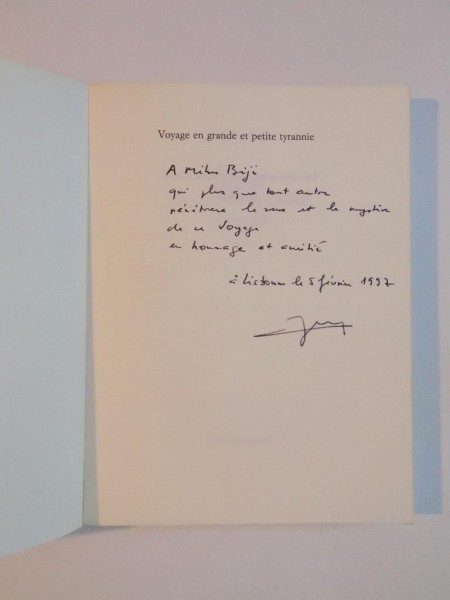 Voyage en grande et petite tyrannie
A Mihu Biji
qui plus que tout autre
pénétrera le sens et le mystère
de ce Voyage
en hommage et amitié
à Lisbonne le 5 février 1997